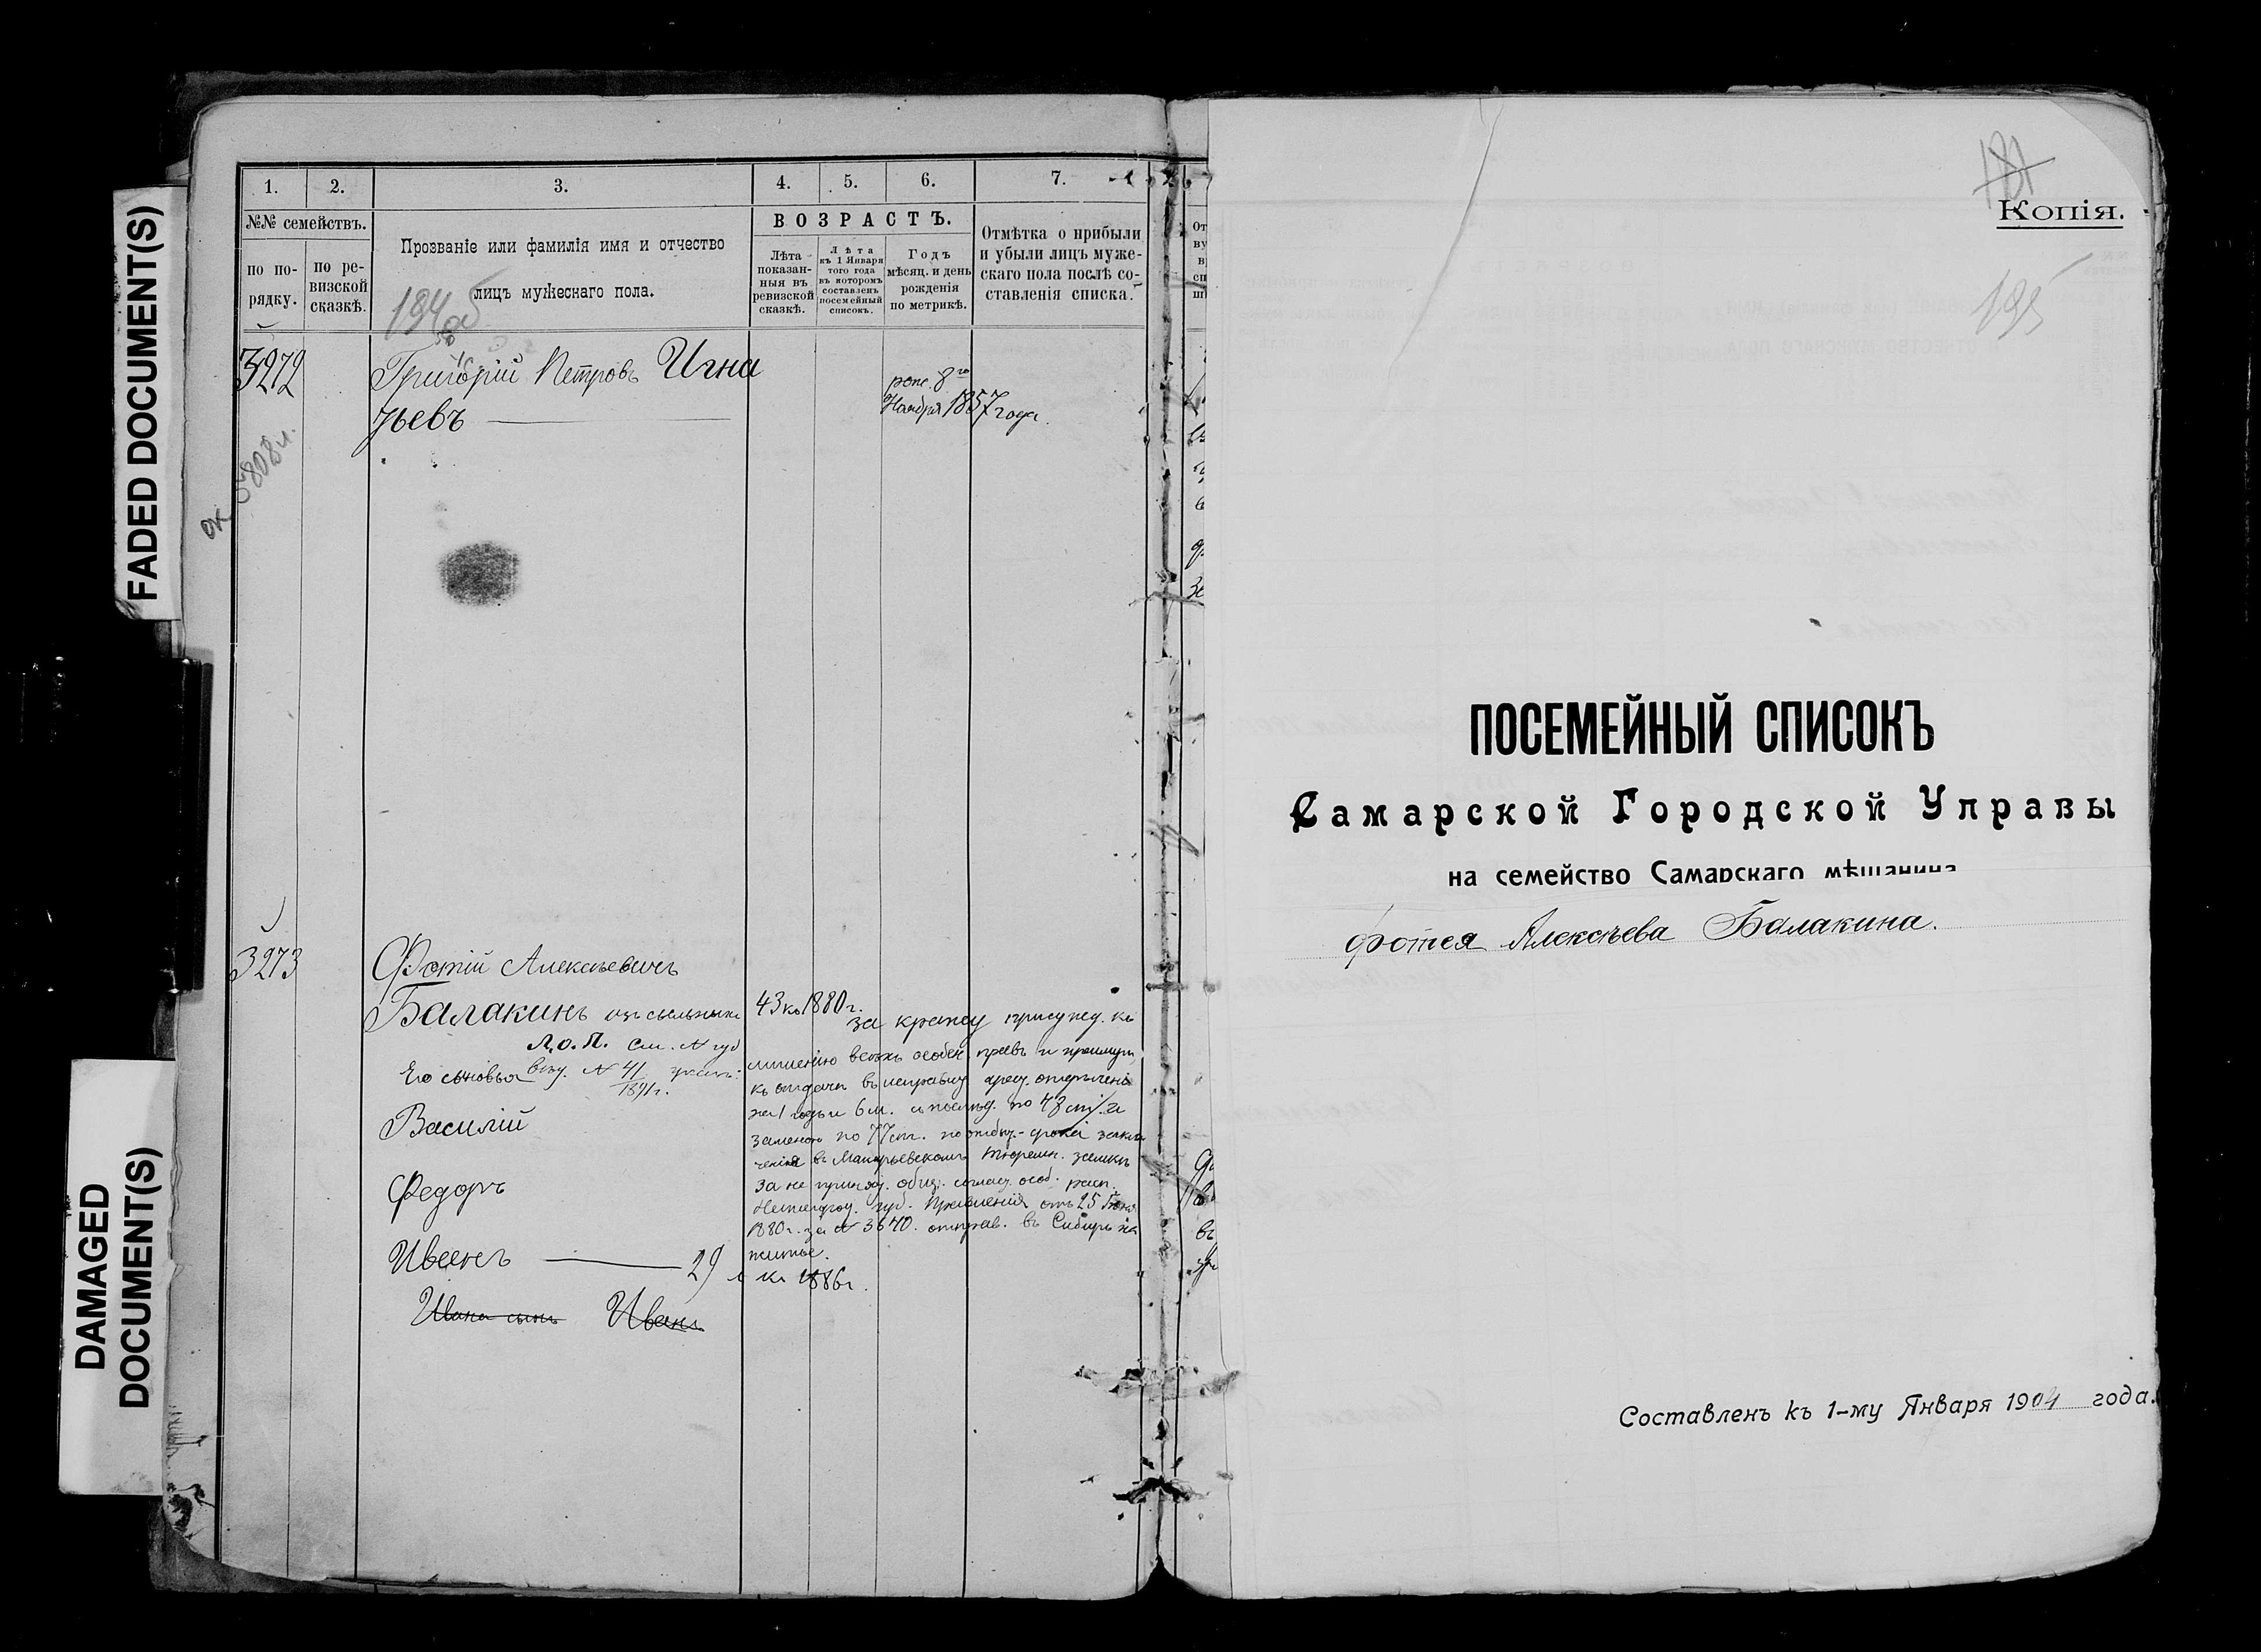 FADED DOCUMENT(S)
DAMAGED
DOCUMENT(S)
1. 2. 3. 4. 5. 6. 7.
№№ семействъ.
по по-
рядку.
по ре-
визской
сказкѣ.
Прозваніе или фамилія имя и отчество
лицъ мужескаго пола.
194об
ВОЗРАСТЪ.
Лѣта
показан-
ныя въ
ревизской
сказкѣ.
Лѣта
къ 1 Января
того года
въ которомъ
составленъ
посемейный
списокъ.
Годъ
мѣсяц. и день
рожденія
по метрикѣ.
Отмѣтка о прибыли
и убыли лицъ муже-
скаго пола послѣ со-
ставленія списка.
3272
Григорій Петровъ Игна
тьевъ
рож. 8го
Ноября 1857 года.
3273
Фотій Алексѣевичъ
Балакинъ изъ ссыльныхъ
43 къ 1880 г.
Л.о.П. См. №
Его сыновья № 41
1891 г.
Василій
Федоръ
Иванъ 29 л къ 1886 г.
Ивана сынъ Иванъ
за кражу присужд. къ
лишенію всѣхъ особен. правъ и преимущ.
къ отдачѣ въ исправ. арест. отдѣленія
на 1 годъ и 6 м. съ послѣд. по 48 ст. и
замѣною по 77 ст. по отбыт. срока заклю
ченія въ Макарьевскомъ тюремн. замкѣ
за не приняті. общ. соглас. особ. расп.
Нижегрод. губ. Правленія отъ 25 Іюня
1880 г. за № 3640. отправ. въ Сибирь на
житье.
187
Копія.
195
ПОСЕМЕЙНЫЙ СПИСОКЪ
Самарской Городской Управы
на семейство Самарскаго мѣщанина
Фотея Алексѣева Балакина.
Составленъ къ 1-му Января 1904 года.